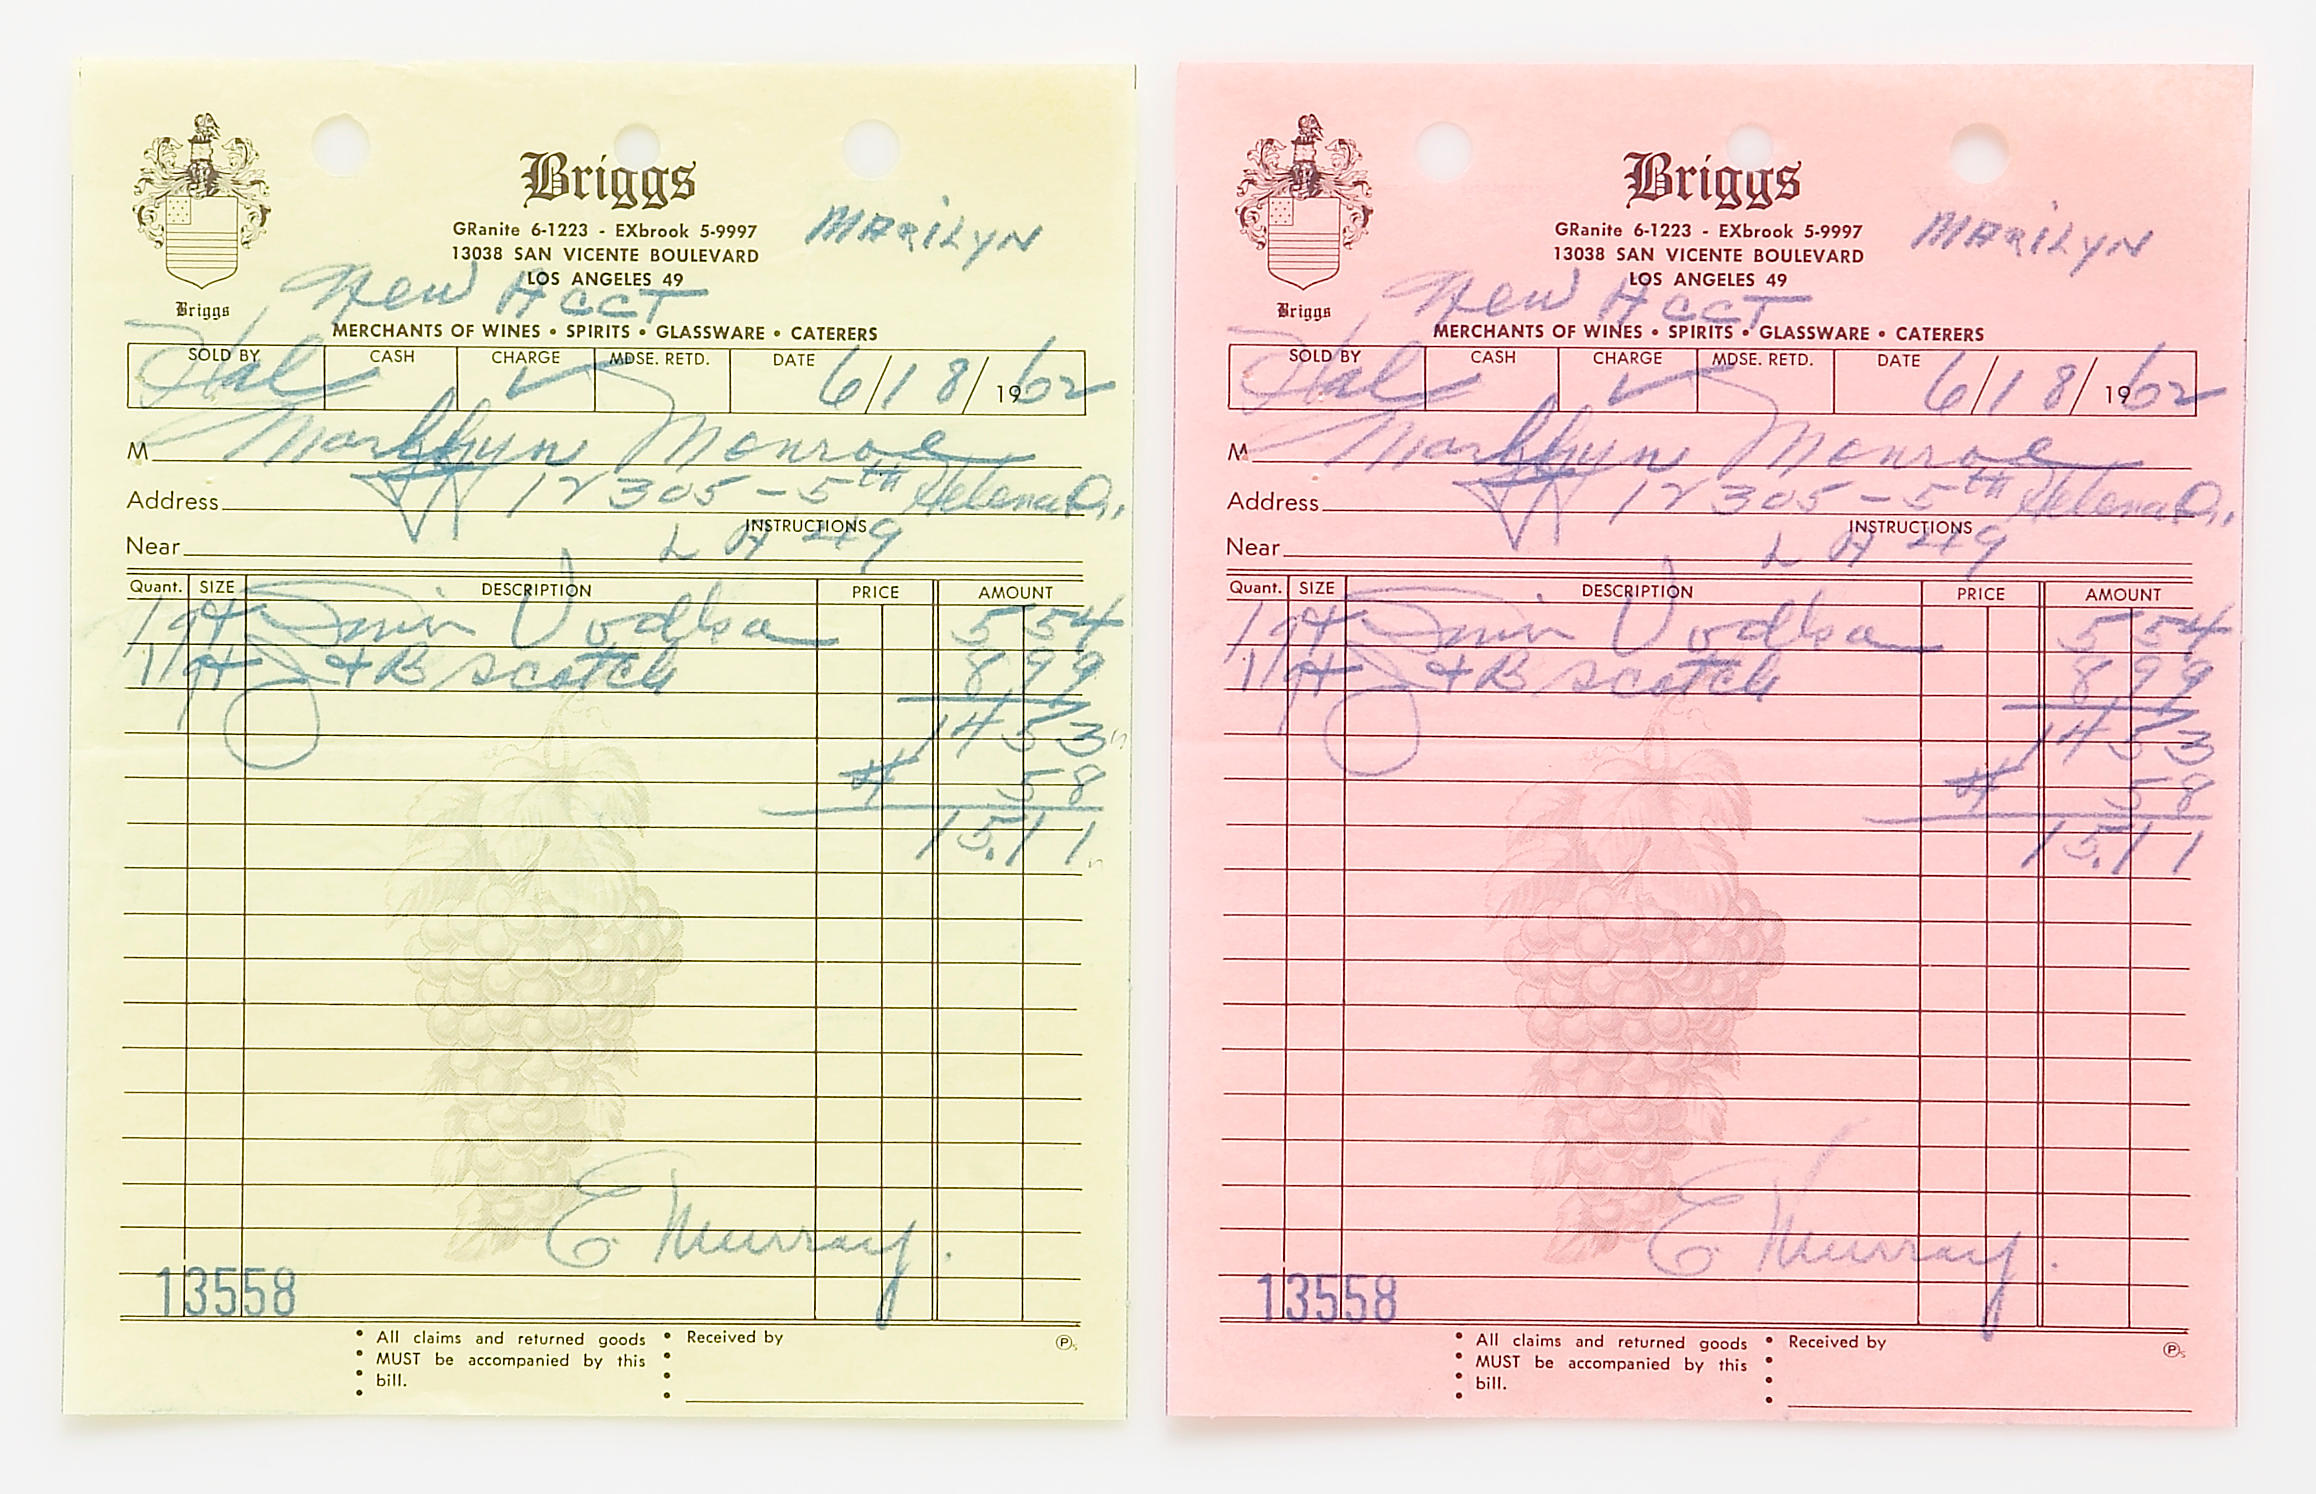 Briggs
GRanite 6-1223 - EXbrook 5-9997
13038 SAN VICENTE BOULEVARD
LOS ANGELES 49
MARiLYN
New ACCT
Briggs
MERCHANTS OF WINES • SPIRITS • GLASSWARE • CATERERS
SOLD BY CASH CHARGE MDSE. RETD. DATE
Hal ✓ 6/18/1962
M Monroe
Address 12305-5th Helena Dr.
INSTRUCTIONS
Near L A 49
Quant. SIZE DESCRIPTION PRICE AMOUNT
1 qt Smir Vodka 5 54
1 qt J + B scotch 8 99
14 53
58
15.11
E Murray.
13558
All claims and returned goods
MUST be accompanied by this
bill.
Received by
Briggs
GRanite 6-1223 - EXbrook 5-9997
13038 SAN VICENTE BOULEVARD
LOS ANGELES 49
MARiLYN
New ACCT
Briggs
MERCHANTS OF WINES • SPIRITS • GLASSWARE • CATERERS
SOLD BY CASH CHARGE MDSE. RETD. DATE
Hal ✓ 6/18/1962
M Monroe
Address 12305-5th Helena Dr.
INSTRUCTIONS
Near L A 49
Quant. SIZE DESCRIPTION PRICE AMOUNT
1 qt Smir Vodka 5 54
1 qt J + B scotch 8 99
14 53
58
15.11
E Murray.
13558
All claims and returned goods
MUST be accompanied by this
bill.
Received by